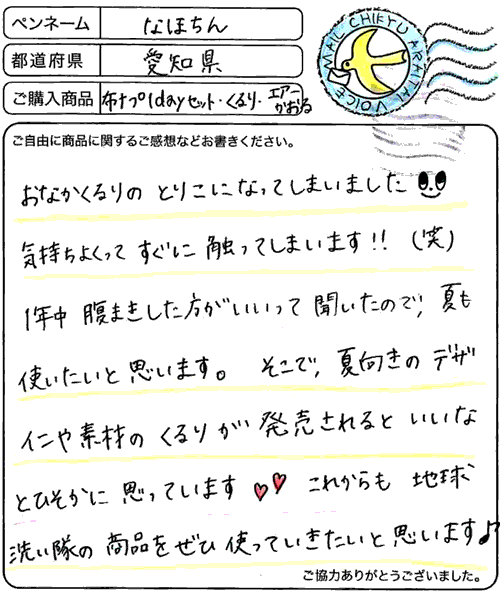 ペンネーム なほちん
VOICE MAIL CHIKYU ARAITAI
都道府県 愛知県
ご購入商品 布ナプ1dayセット・くるり・エアーかおる
ご自由に商品に関するご感想などお書きください。
おなかくるりの とりこになってしまいました
気持ちよくって すぐに 触ってしまいます!! (笑)
1年中 腹まきした方がいいって 聞いたので、夏も
使いたいと思います。 そこで、夏向きの デザ
インや素材の くるり が 発売されると いいな
とひそかに 思っています これからも 地球
洗い隊の 商品をぜひ 使っていきたいと思います♪
ご協力ありがとうございました。